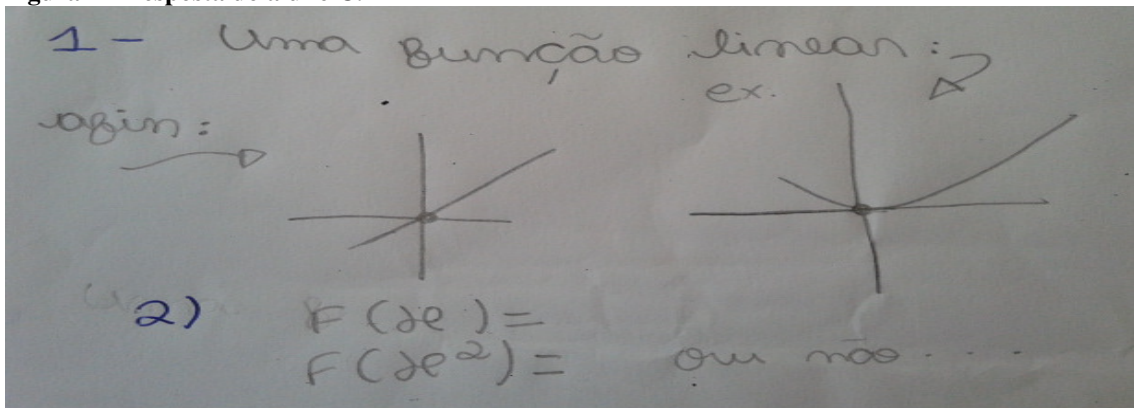 1 - Uma função linear:
ex.
afin:
2) F(x) =
F(x²) = ou não....